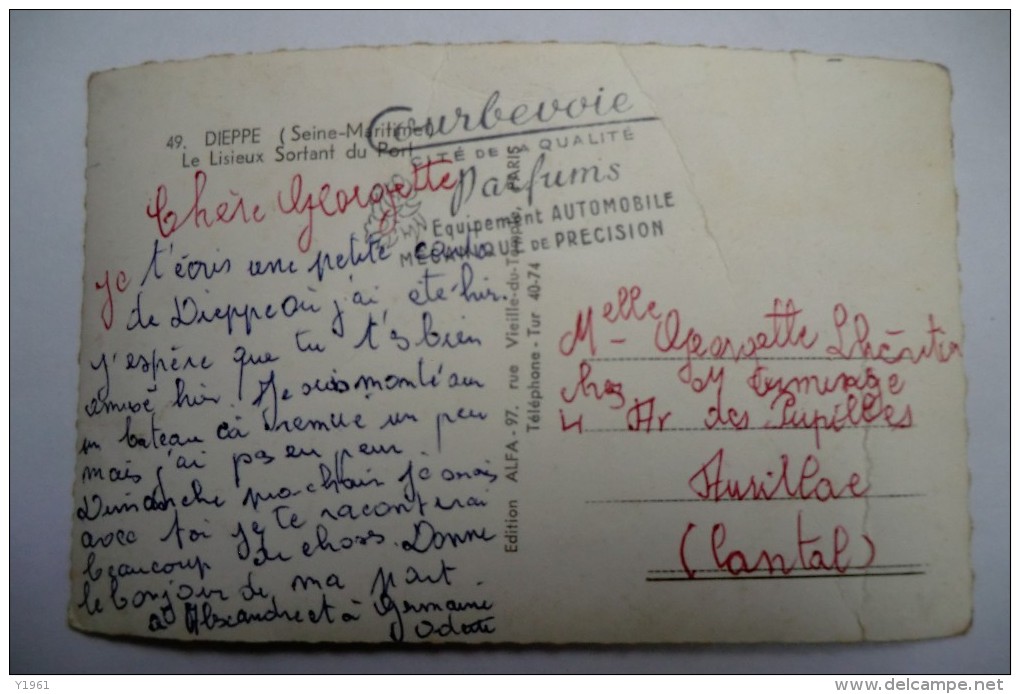 49. DIEPPE (Seine-Maritime)
Le Lisieux Sortant du Port
Courbevoie
CITÉ DE LA QUALITÉ
Parfums
Equipement AUTOMOBILE
MECANIQUE de PRECISION
Chère Georgette
Je t'écris une petite carte
de Dieppe où j'ai été hier.
J'espère que tu t'es bien
amusé hier. Je suis monté sur
un bateau ça remue un peu
mais j'ai pas eu peur.
Dimanche prochain je
avec toi je te raconterai
beaucoup de choses. Donne
le bonjour de ma part
à Alexandre et à Germaine
Odette
Edition ALFA - 97, rue Vieille-du-Temple, PARIS
Téléphone - Tur 40-74
Melle Georgette
chez M
4 Av des Pupilles
Aurillac
(Cantal)
Y1961
delcampe.net